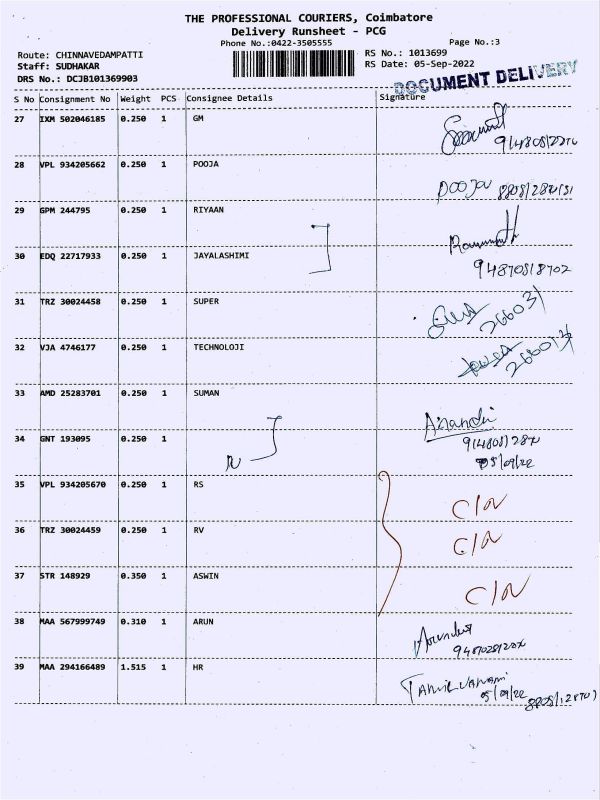 THE PROFESSIONAL COURIERS, Coimbatore
Delivery Runsheet - PCG
Phone No.:0422-3505555
Page No.:3
Route: CHINNAVEDAMPATTI
RS No.: 1013699
Staff: SUDHAKAR
RS Date: 05-Sep-2022
DRS No.: DCJB101369903
DOCUMENT DELIVERY
S No Consignment No Weight PCS Consignee Details Signature
27 IXM 502046185 0.250 1 GM
28 VPL 934205662 0.250 1 POOJA
POOJA
29 GPM 244795 0.250 1 RIYAAN
30 EDQ 22717933 0.250 1 JAYALASHIMI
31 TRZ 30024458 0.250 1 SUPER
266031
32 VJA 4746177 0.250 1 TECHNOLOJI
33 AMD 25283701 0.250 1 SUMAN
Anandi
34 GNT 193095 0.250 1
05/09/22
35 VPL 934205670 0.250 1 RS
C/N
36 TRZ 30024459 0.250 1 RV
C/N
37 STR 148929 0.350 1 ASWIN
C/N
38 MAA 567999749 0.310 1 ARUN
39 MAA 294166489 1.515 1 HR
05/09/22